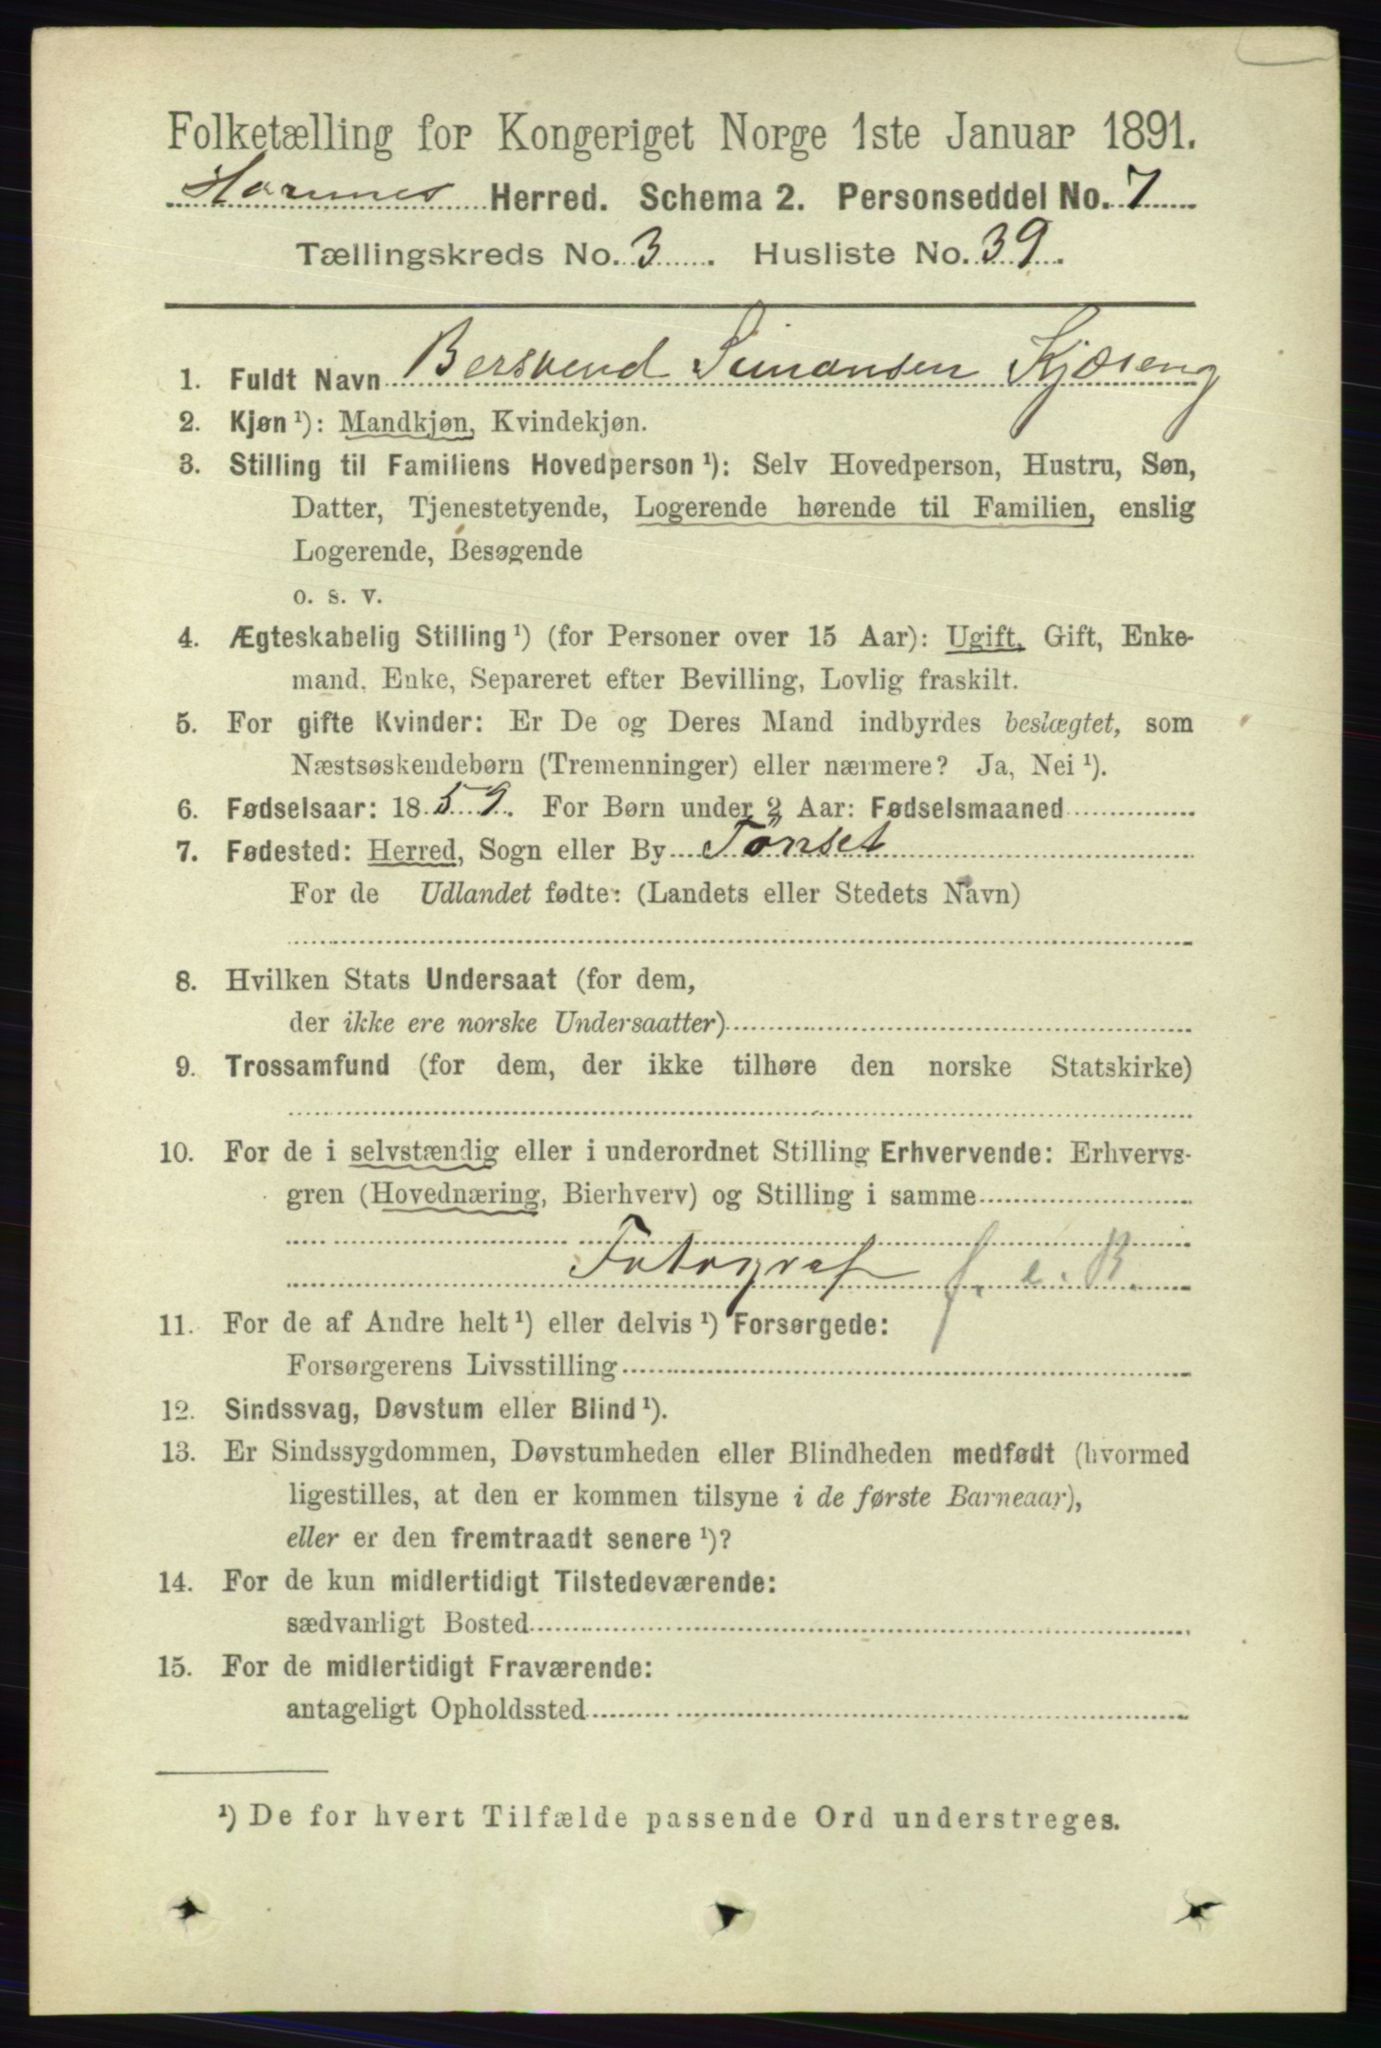 Folketælling for Kongeriget Norge 1ste Januar 1891.
Hornnes Herred. Schema 2. Personseddel No. 7
Tællingskreds No. 3 Husliste No. 39.
1. Fuldt Navn Bersvend Simonsen Kjøseng
2. Kjøn ¹): Mandkjøn, Kvindekjøn.
3. Stilling til Familiens Hovedperson ¹): Selv Hovedperson, Hustru, Søn,
Datter, Tjenestetyende, Logerende hørende til Familien, enslig
Logerende, Besøgende
o. s. v.
4. Ægteskabelig Stilling ¹) (for Personer over 15 Aar): Ugift, Gift, Enke-
mand, Enke, Separeret efter Bevilling, Lovlig fraskilt.
5. For gifte Kvinder: Er De og Deres Mand indbyrdes beslægtet, som
Næstsøskendebørn (Tremenninger) eller nærmere? Ja, Nei ¹).
6. Fødselsaar: 1859. For Børn under 2 Aar: Fødselsmaaned
7. Fødested: Herred, Sogn eller By Tönset
For de Udlandet fødte: (Landets eller Stedets Navn)
8. Hvilken Stats Undersaat (for dem,
der ikke ere norske Undersaatter)
9. Trossamfund (for dem, der ikke tilhøre den norske Statskirke)
10. For de i selvstændig eller i underordnet Stilling Erhvervende: Erhvervs-
gren (Hovednæring, Bierhverv) og Stilling i samme
Fotograf f. e. B.
11. For de af Andre helt ¹) eller delvis ¹) Forsørgede:
Forsørgerens Livsstilling
12. Sindssvag, Døvstum eller Blind ¹).
13. Er Sindssygdommen, Døvstumheden eller Blindheden medfødt (hvormed
ligestilles, at den er kommen tilsyne i de første Barneaar),
eller er den fremtraadt senere ¹)?
14. For de kun midlertidigt Tilstedeværende:
sædvanligt Bosted
15. For de midlertidigt Fraværende:
antageligt Opholdssted
¹) De for hvert Tilfælde passende Ord understreges.